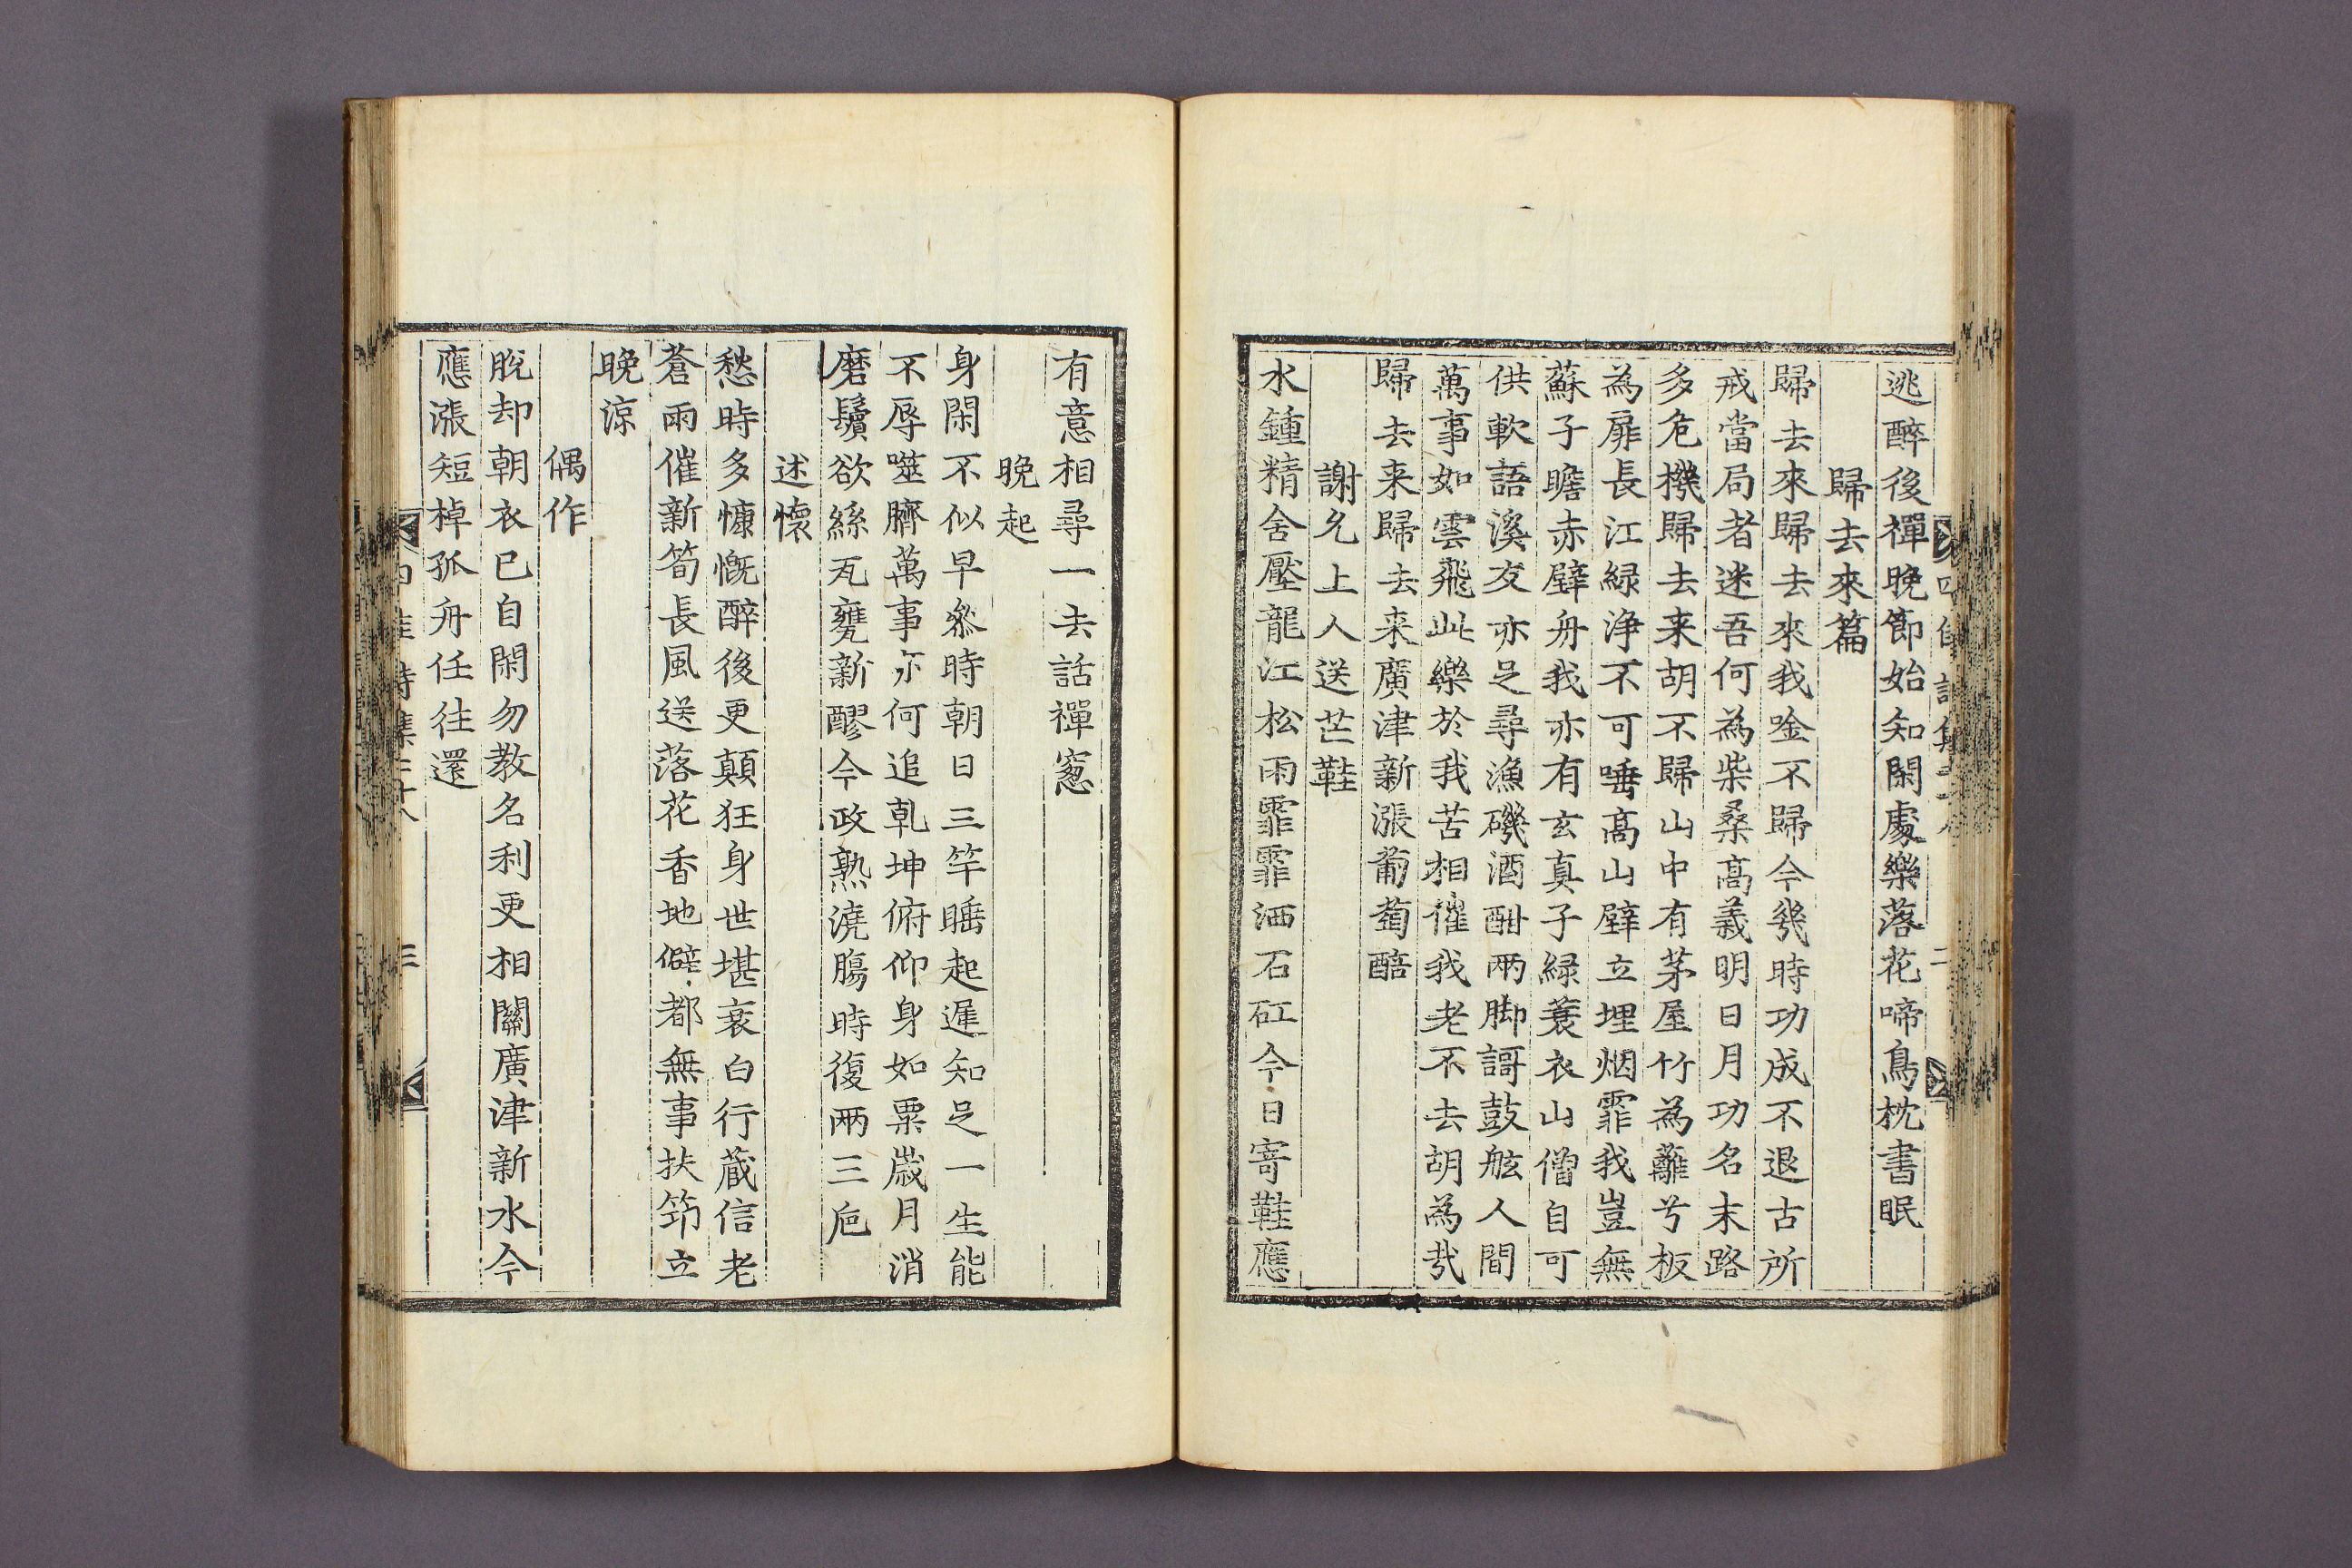 逃醉後禪晩節始知閑處樂落花啼鳥枕書眠
歸去來篇
歸去來歸去來我唫不歸今幾時功成不退古所
戒當局者迷吾何為柴桑高義明日月功名末路
多危機歸去来胡不歸山中有茅屋竹為蘺兮板
為扉長江緑浄不可唾高山壁立埋烟霏我豈無
蘇子瞻赤壁舟我亦有玄真子緑蓑衣山僧自可
供軟語溪友亦足尋漁磯酒酣兩脚謌鼓舷人間
萬事如雲飛此樂於我苦相催我老不去胡為㢤
歸去来歸去来廣津新漲葡萄醅
謝允上人送芒鞋
水鍾精舍壓龍江松雨霏霏洒石矼今日寄鞋應
有意相尋一去話禪窓
晩起
身閑不似早叅時朝日三竿睡起遲知足一生能
不辱噬臍萬事亦何追乹坤俯仰身如粟歳月消
磨鬢欲絲瓦甕新醪今政熟澆膓時復兩三巵
述懷
愁時多慷慨醉後更顛狂身世堪衰白行藏信老
蒼雨催新筍長風送落花香地僻都無事扶筇立
晩涼
偶作
脫却朝衣已自閑勿教名利更相關廣津新水今
應漲短棹孤舟任往還
四佳詩集
三
二